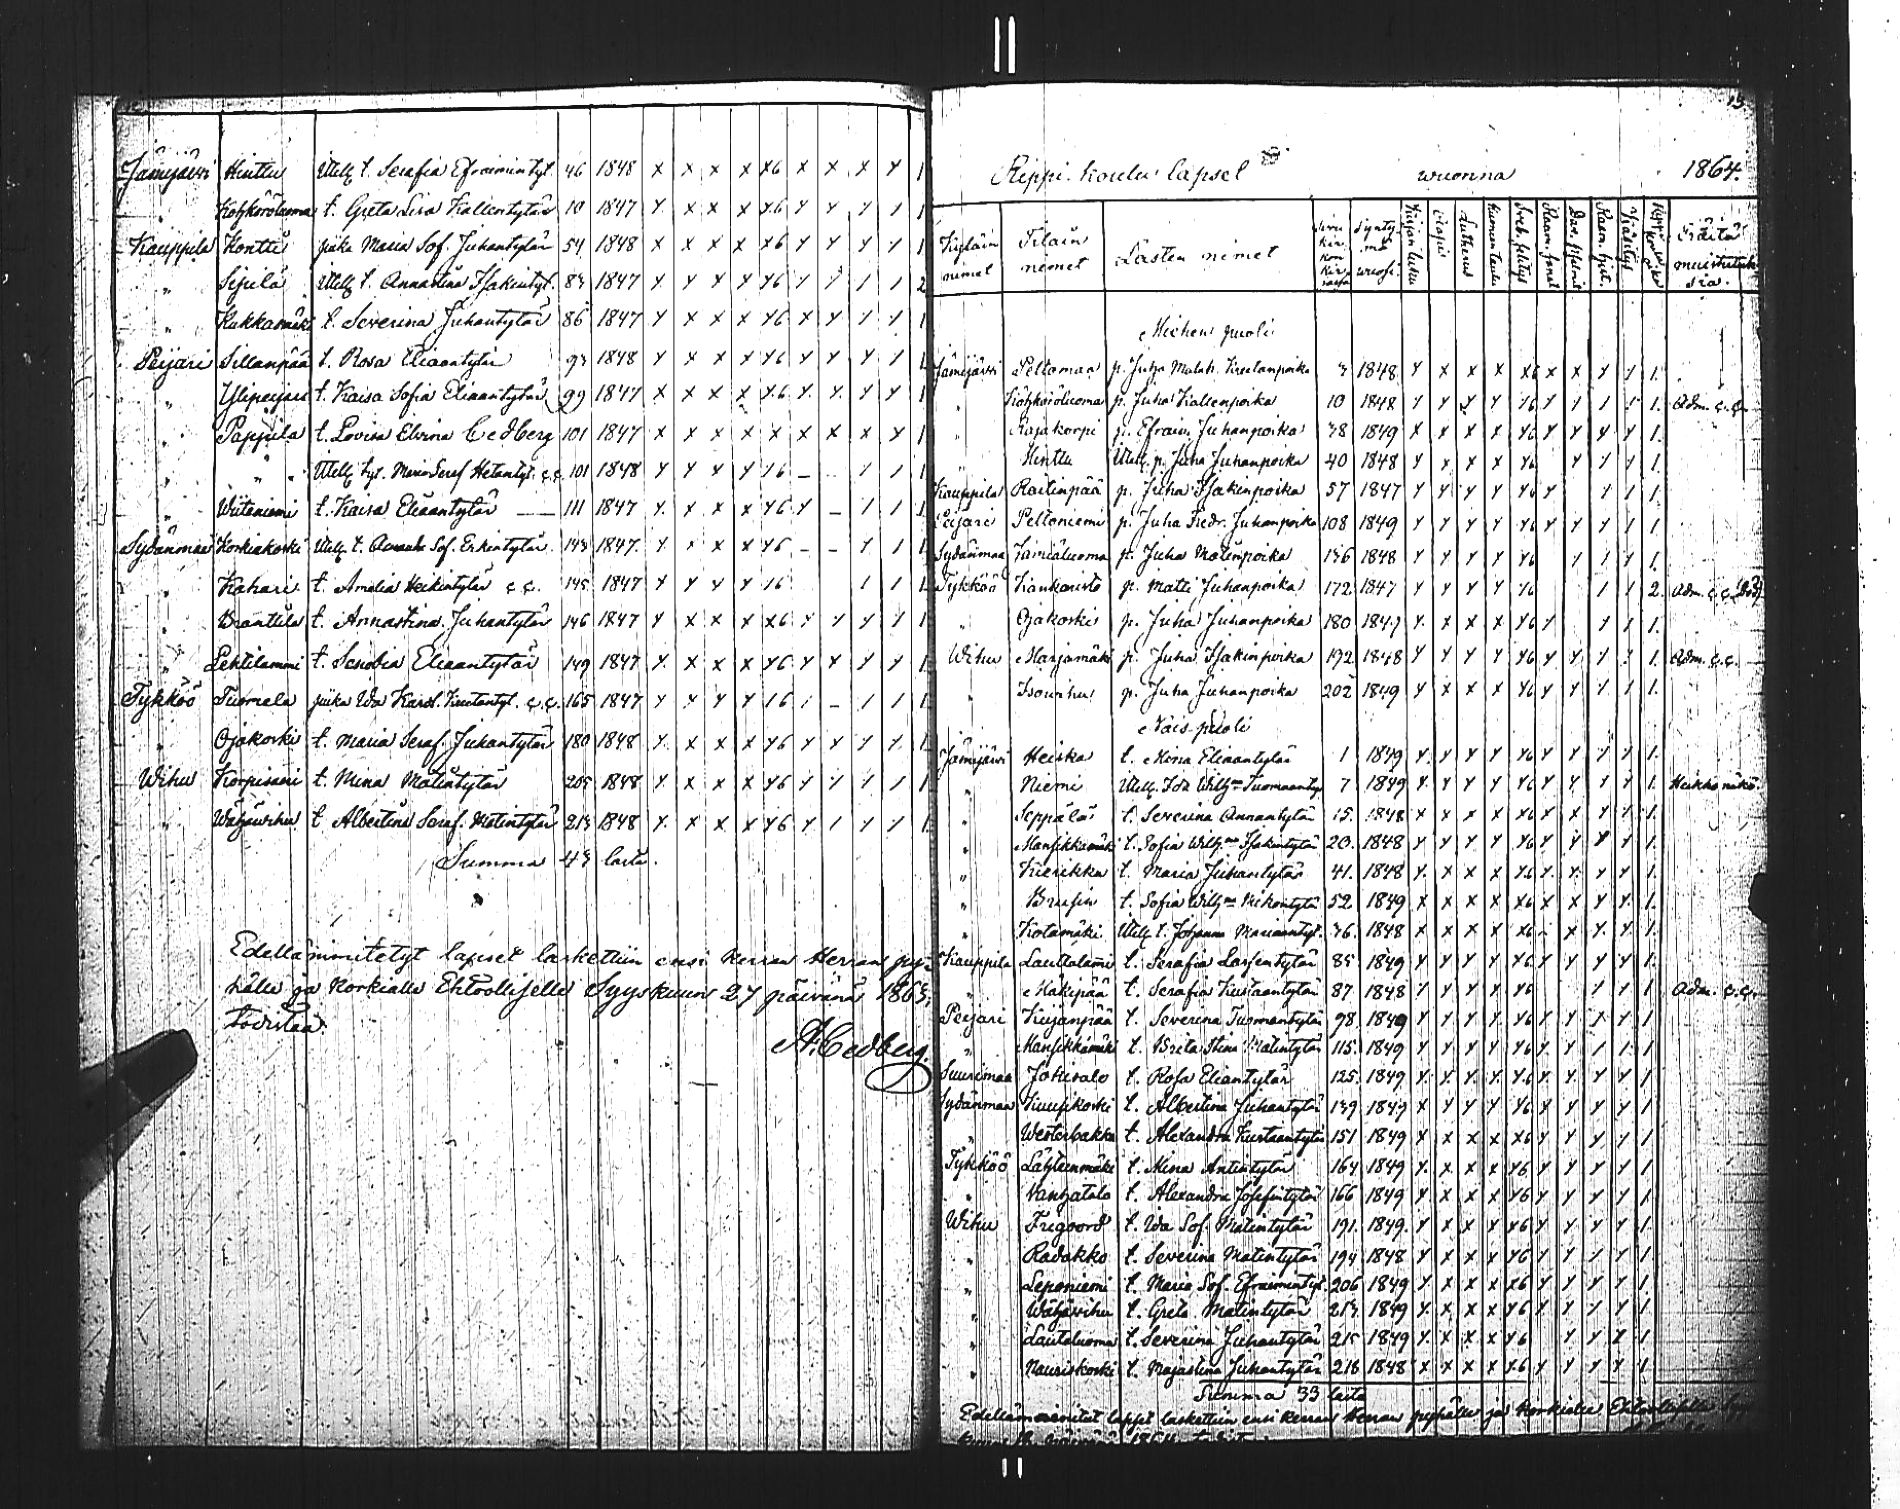 Jämijärvi Hinttu Utell. t. Serafia Efraimintyt. 46 1848 x x x x x6 x x x x 1
" Kohkoröluoma t. Greta Lisa Kallentytär 10 1847 x x x x x6 x x / / 1
Kauppila Konttu piika Maria Sof. Juhantytär 54 1848 x x x x x6 x x / x 1
" Sipilä Utell. t. Annastina Isakintyt. 84 1847 x x x x x6 / / / / 2
" Kukkamäki t. Severina Juhantytär 86 1847 x x x x x6 x x / / 1
Peijari Sillanpää t. Rosa Eliaantytär 93 1848 x x x x x6 x x x / 1
" Ylipeijari t. Kaisa Sofia Eliaantytär 99 1847 x x x x x6 x x x x 1
" Pappila t. Lovisa Elvira Cedberg 101 1847 x x x x x x x x x 1
" " Utell. tyt. Maria Seraf. Hetantyt. c.c. 101 1848 x x x x 16 – – / / 1
" Witaniemi t. Kaisa Eliaantytär 111 1847 x x x x x6 x – / / 1
Sydänmaa Koskiakoski Utell. t. Amanda Sof. Erkintytär 143 1847 x x x x x6 – – x / 1
" Kahari t. Amalia Heikintytär c.c. 145 1847 x x x x 16 / / 1
" Branttila t. Annastina Juhantytär 146 1847 x x x x x6 x x x x 1
" Lehtilammi t. Senobia Eliaantytär 149 1847 x x x x x6 x x x x 1
Tykköö Tuomela piika Ida Karol. Kustantyt. c.c. 165 1847 x x x x 16 / – / / 1
" Ojakoski t. Maria Seraf. Juhantytär 180 1848 x x x x x6 x x x x 1
Wihu Korpisaari t. Mina Matintytär 205 1848 x x x x x6 x x / / 1
" Wähäwihu t. Albertina Seraf. Matintytär 213 1848 x x x x x6 x / / / 1
Summa 43 lasta.
Edellämainitetyt lapset laskettiin ensi kerran Herran py-
hälle ja korkialle Ehtoollisselle Syyskuun 27 päivänä 1863,
todistaa:
A. Cedberg.
13.
Rippi-koulu lapset wuonna 1864.
Kyläin nimet Tilain nimet Lasten nimet Synty- mä wuosi. Kirjan luku Lutherus Huoneen taulu Ymärrys Eräitä muistutuksia.
Miehen puoli
Jämijärvi Peltomaa p. Juha Malak. Kustanpoika 3 1848 x x x x x6 x x x x 1.
" Kohkoröluoma p. Juha Kallenpoika 10 1848 x x x x x6 x / / / 1. Adm. c.c.
" Rajakorpi p. Efraim Juhanpoika 38 1849 x x x x x6 x x x x 1.
" Hinttu Utell. p. Juha Juhanpoika 40 1848 x x x x x6 x x x 1.
Kauppila Raitinpää p. Juha Isakinpoika 57 1847 x x x x x6 x / / 1.
Peijari Peltoniemi p. Juha Fredr. Juhanpoika 108 1849 x x x x x6 x x x / 1
Sydänmaa Jämiäluoma p. Juha Matinpoika 136 1848 x x x x x6 / x / 1.
Tykköö Kankaristo p. Matti Juhanpoika 172 1847 x x x x x6 / / 2. Adm. c.c.
" Ojakoski p. Juha Juhanpoika 180 1847 x x x x x6 x x / 1.
Wihu Marjamäki p. Juha Isakinpoika 192 1848 x x x x x6 x x x / 1. Adm. c.c.
" Isowihu p. Juha Juhanpoika 202 1849 x x x x x6 x x x / 1.
Nais-puoli
Jämijärvi Heiska t. Mina Eliaantytär 1 1849 x x x x x6 x x x x 1.
" Niemi Utell. Ida Wilh:na Tuomaantyt. 7 1849 x x x x x6 x x x x 1. Heikko näkö
" Seppälä t. Severina Annantytär 15. 1848 x x x x x6 x x x x 1.
" Mansikkamäki t. Sofia Wilh:na Isakintytär 20. 1848 x x x x x6 x x x x 1.
" Kierikka t. Maria Juhantytär 41. 1848 x x x x x6 x x x x 1.
" Brusin t. Sofia Wilh:na Mikontytär 52 1849 x x x x x6 x x x x 1.
" Kotamäki Utell. t. Johanna Mariaantyt. 76. 1848 x x x x x6 – x x x 1.
Kauppila Lauttalammi t. Serafia Larsentytär 85 1849 x x x x x6 x x x x 1.
" Mäkipää t. Serafia Kustaantytär 87 1848 x x x x x6 / x / 1 Adm. c.c.
Peijari Kujanpää t. Severina Tuomantytär 98. 1849 x x x x x6 x x x x 1
" Mansikkamäki t. Breta Stina Matintytär 115. 1849 x x x x x6 x x / / 1
Suurimaa Jokisalo t. Rosa Eliantytär 125. 1849 x x x x x6 x x x x 1
Sydänmaa Kuusikoski t. Albertina Juhantytär 139 1849 x x x x x6 x x x x 1
" Westerbakka t. Alexandra Kustaantytär 151 1849 x x x x x6 x x x x 1
Tykköö Lähteenmäki t. Mina Antintytär 164 1849 x x x x x6 x x x x 1
" Vanhatalo t. Alexandra Josefintytär 166 1849 x x x x x6 x x x x 1
Wihu Fregoord t. Ida Sof. Matintytär 191. 1849. x x x x x6 x x x x 1
" Radakko t. Severina Matintytär 194 1848 x x x x x6 x x x x 1
" Leponiemi t. Maria Sof. Efraimintyt. 206 1849 x x x x x6 x x x x 1
" Wähäwihu t. Greta Matintytär 213. 1849 x x x x x6 x x x x 1
" Lautaluoma t. Severina Juhantytär 215 1849 x x x x x6 x x x 1
" Nauriskoski t. Majastina Juhantytär 218 1848 x x x x x6 x x x x 1
Summa 33 lasta
Edellämainitut lapset laskettiin ensi kerran Herran pyhälle ja korkialle Ehtoollisselle